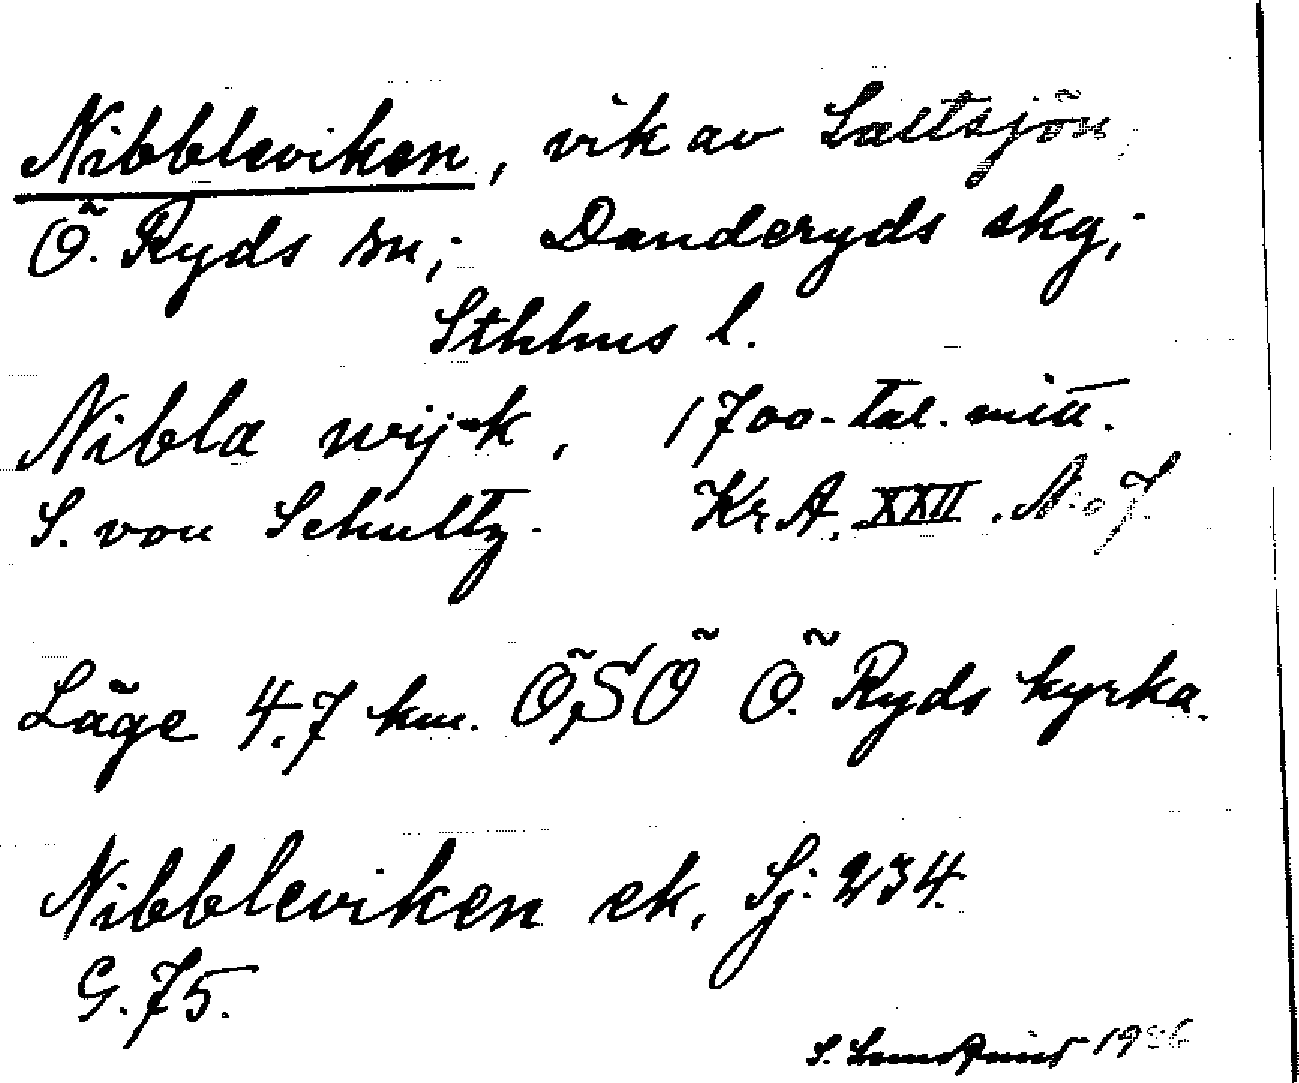 Nibbleviken, vik av Saltsjön,
Ö. Ryds sn; Danderyds skg;
Sthlms l.
Nibla wijk, 1700-tal. mitt.
S. von Schultz. Kr. A. XXII. No 7.
Läge 4.7 km. ÖSÖ Ö. Ryds kyrka.
Nibbleviken ek, Sj: 234.
G. 75.
S. 19